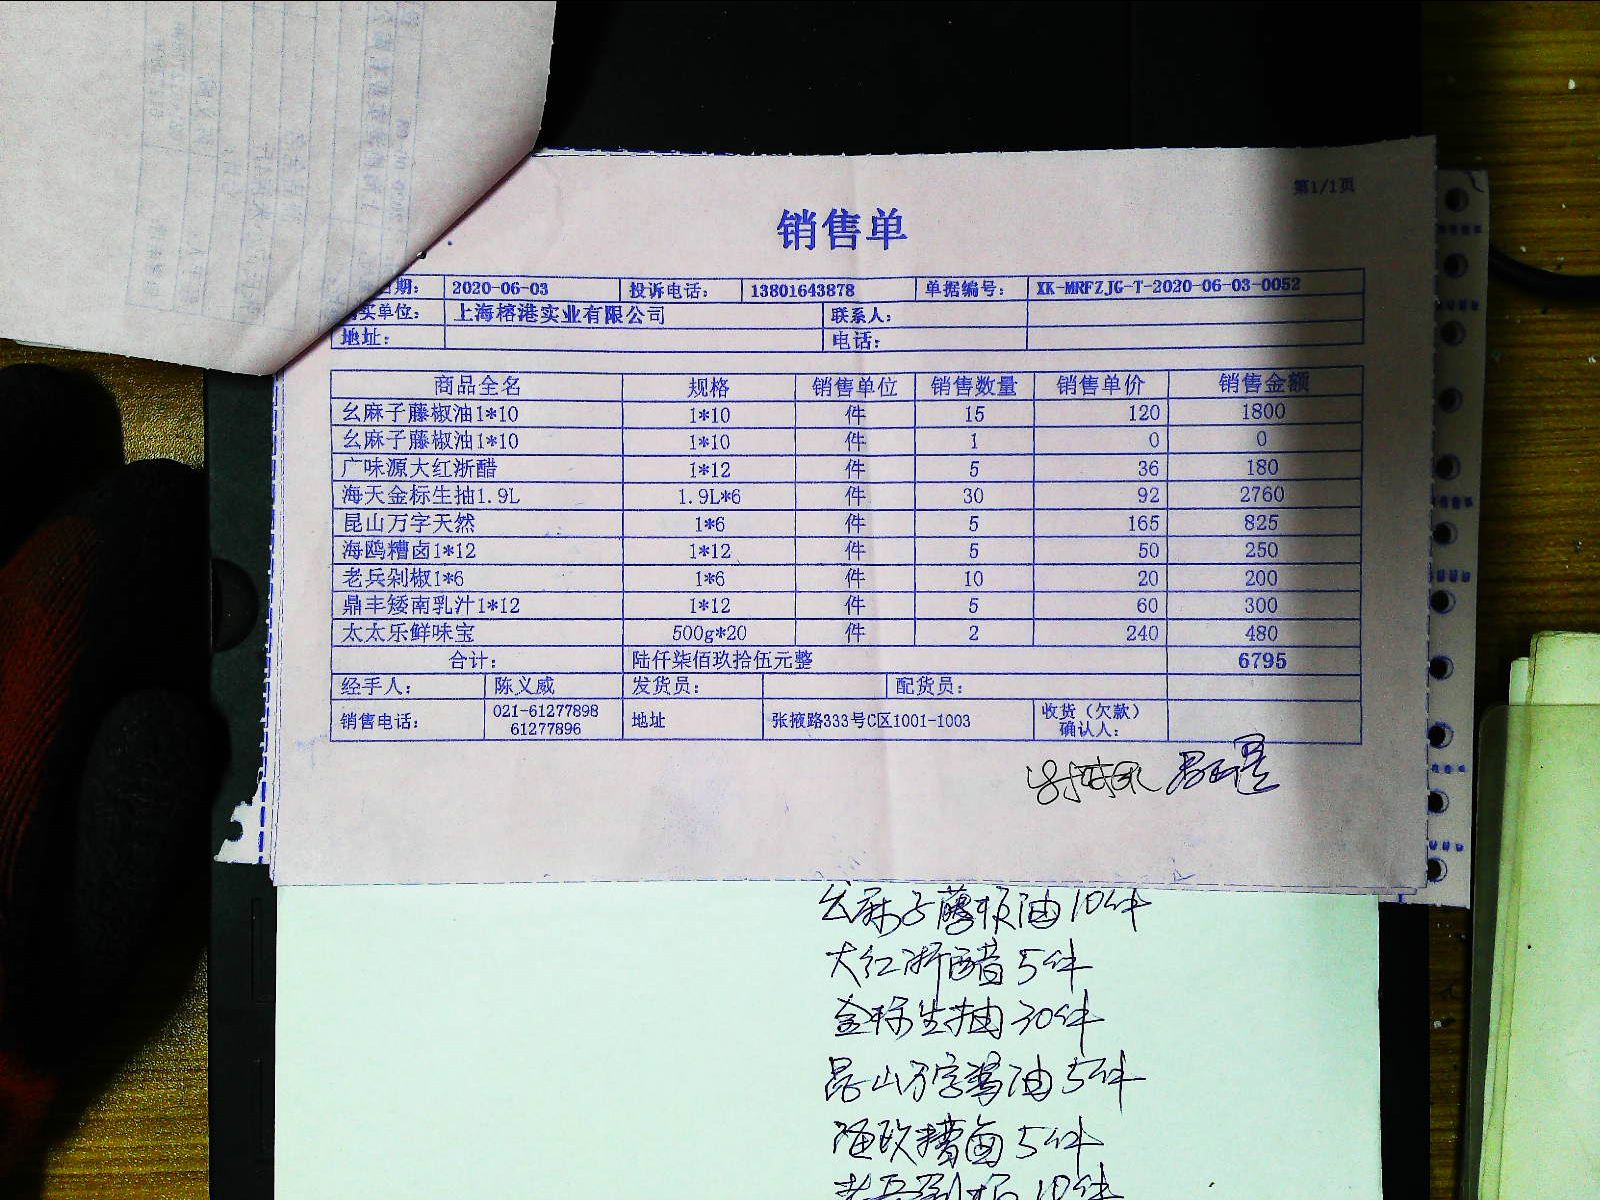 第1/1页
销售单
日期： 2020-06-03 投诉电话： 13801643878 单据编号： XK-MRFZJG-T-2020-06-03-0052
买单位： 上海榕港实业有限公司 联系人：
地址： 电话：
商品全名 规格 销售单位 销售数量 销售单价 销售金额
幺麻子藤椒油1*10 1*10 件 15 120 1800
幺麻子藤椒油1*10 1*10 件 1 0 0
广味源大红浙醋 1*12 件 5 36 180
海天金标生抽1.9L 1.9L*6 件 30 92 2760
昆山万字天然 1*6 件 5 165 825
海鸥糟卤1*12 1*12 件 5 50 250
老兵剁椒1*6 1*6 件 10 20 200
鼎丰矮南乳汁1*12 1*12 件 5 60 300
太太乐鲜味宝 500g*20 件 2 240 480
合计： 陆仟柒佰玖拾伍元整 6795
经手人： 陈义威 发货员： 配货员：
销售电话： 021-61277898 61277896 地址 张掖路333号C区1001-1003 收货（欠款）确认人：
幺麻子藤椒油10件
大红浙醋5件
金标生抽30件
昆山万字酱油5件
海鸥糟卤5件
老兵剁椒10件